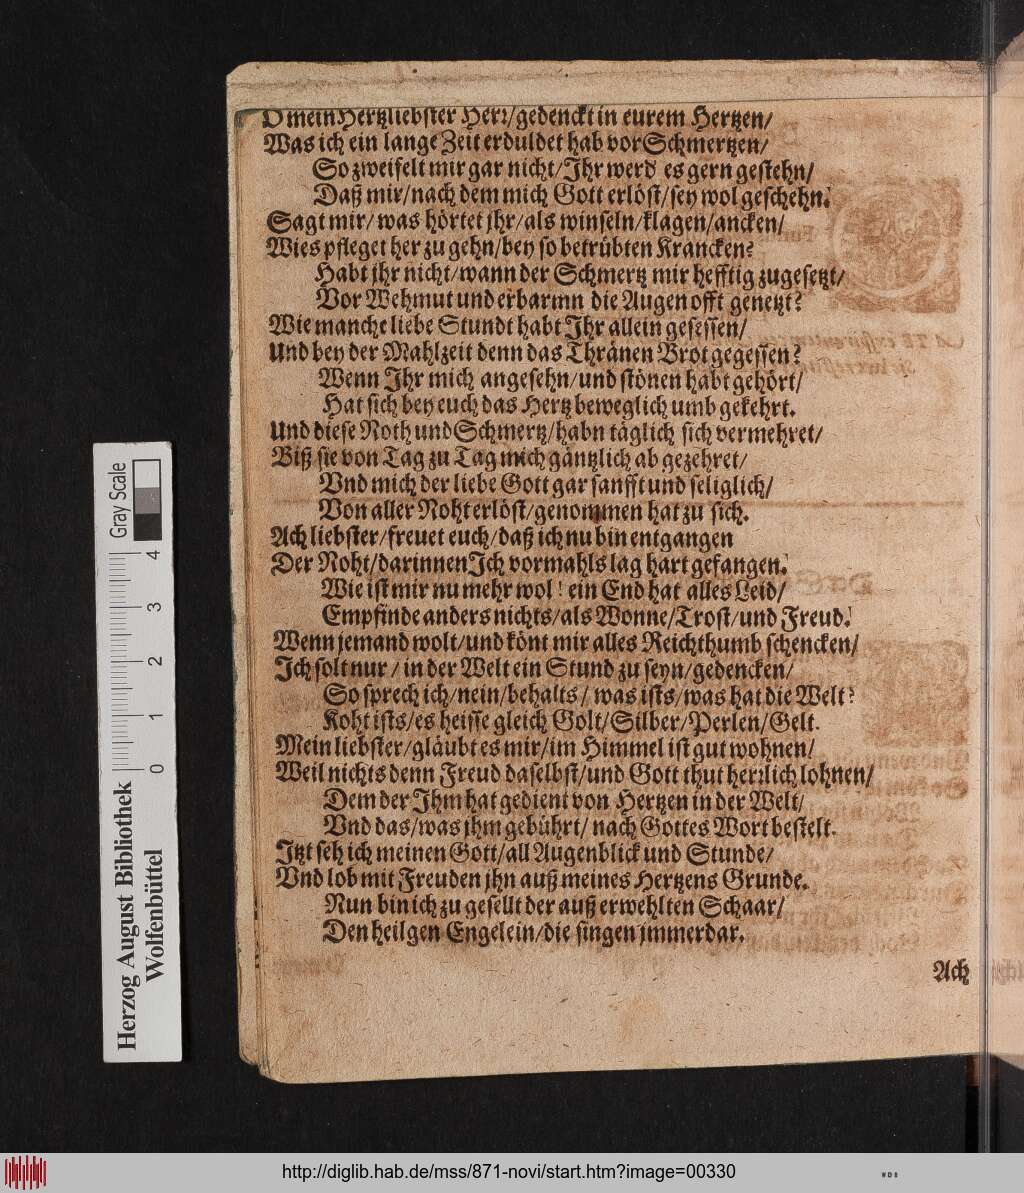 O mein Hertzliebster Herr/gedenckt in eurem Hertzen/
Was ich ein lange Zeit erduldet hab vor Schmertzen/
So zweifelt mir gar nicht/Jhr werd es gern gestehn/
Daß mir/nach dem mich Gott erlöst/sey wol geschehn.
Sagt mir/was hörtet jhr/als winseln/klagen/ancken/
Wies pfleget her zu gehn/bey so betrübten Krancken?
Habt jhr nicht/wann der Schmertz mir hefftig zugesetzt/
Vor Wehmut und erbarmn die Augen offt genetzt?
Wie manche liebe Stundt habt Jhr allein gesessen/
Und bey der Mahlzeit denn das Thränen Brot gegessen?
Wenn Jhr mich angesehn/und stönen habt gehört/
Hat sich bey euch das Hertz beweglich umb gekehrt.
Und diese Noth und Schmertz/habn täglich sich vermehret/
Biß sie von Tag zu Tag mich gäntzlich abgezehret/
Vnd mich der liebe Gott gar sanfft und seliglich/
Von aller Noht erlöst/genommen hat zu sich.
Ach liebster/freuet euch/daß ich nu bin entgangen
Der Noht/darinnen Jch vormahls lag hart gefangen.
Wie ist mir nu mehr wol! ein End hat alles Leid/
Empfinde anders nichts/als Wonne/Trost/und Freud.
Wenn jemand wolt/und könt mir alles Reichthumb schencken/
Jch solt nur/in der Welt ein Stund zu seyn/gedencken/
So sprech ich/nein/behalts/was ists/was hat die Welt?
Koht ists/es heisse gleich Golt/Silber/Perlen/Gelt.
Mein liebster/gläubt es mir/im Himmel ist gut wohnen/
Weil nichts denn Freud daselbst/und Gott thut herrlich lohnen/
Dem der Jhm hat gedient von Hertzen in der Welt/
Vnd das/was jhm gebührt/nach Gottes Wort bestelt.
Jtzt seh ich meinen Gott/all Augenblick und Stunde/
Vnd lob mit Freuden jhn auß meines Hertzens Grunde.
Nun bin ich zu gesellt der auß erwehlten Schaar/
Den heilgen Engelein/die singen jmmerdar.
Ach
Gray Scale
0 1 2 3 4
Herzog August Bibliothek
Wolfenbüttel
http://diglib.hab.de/mss/871-novi/start.htm?image=00330